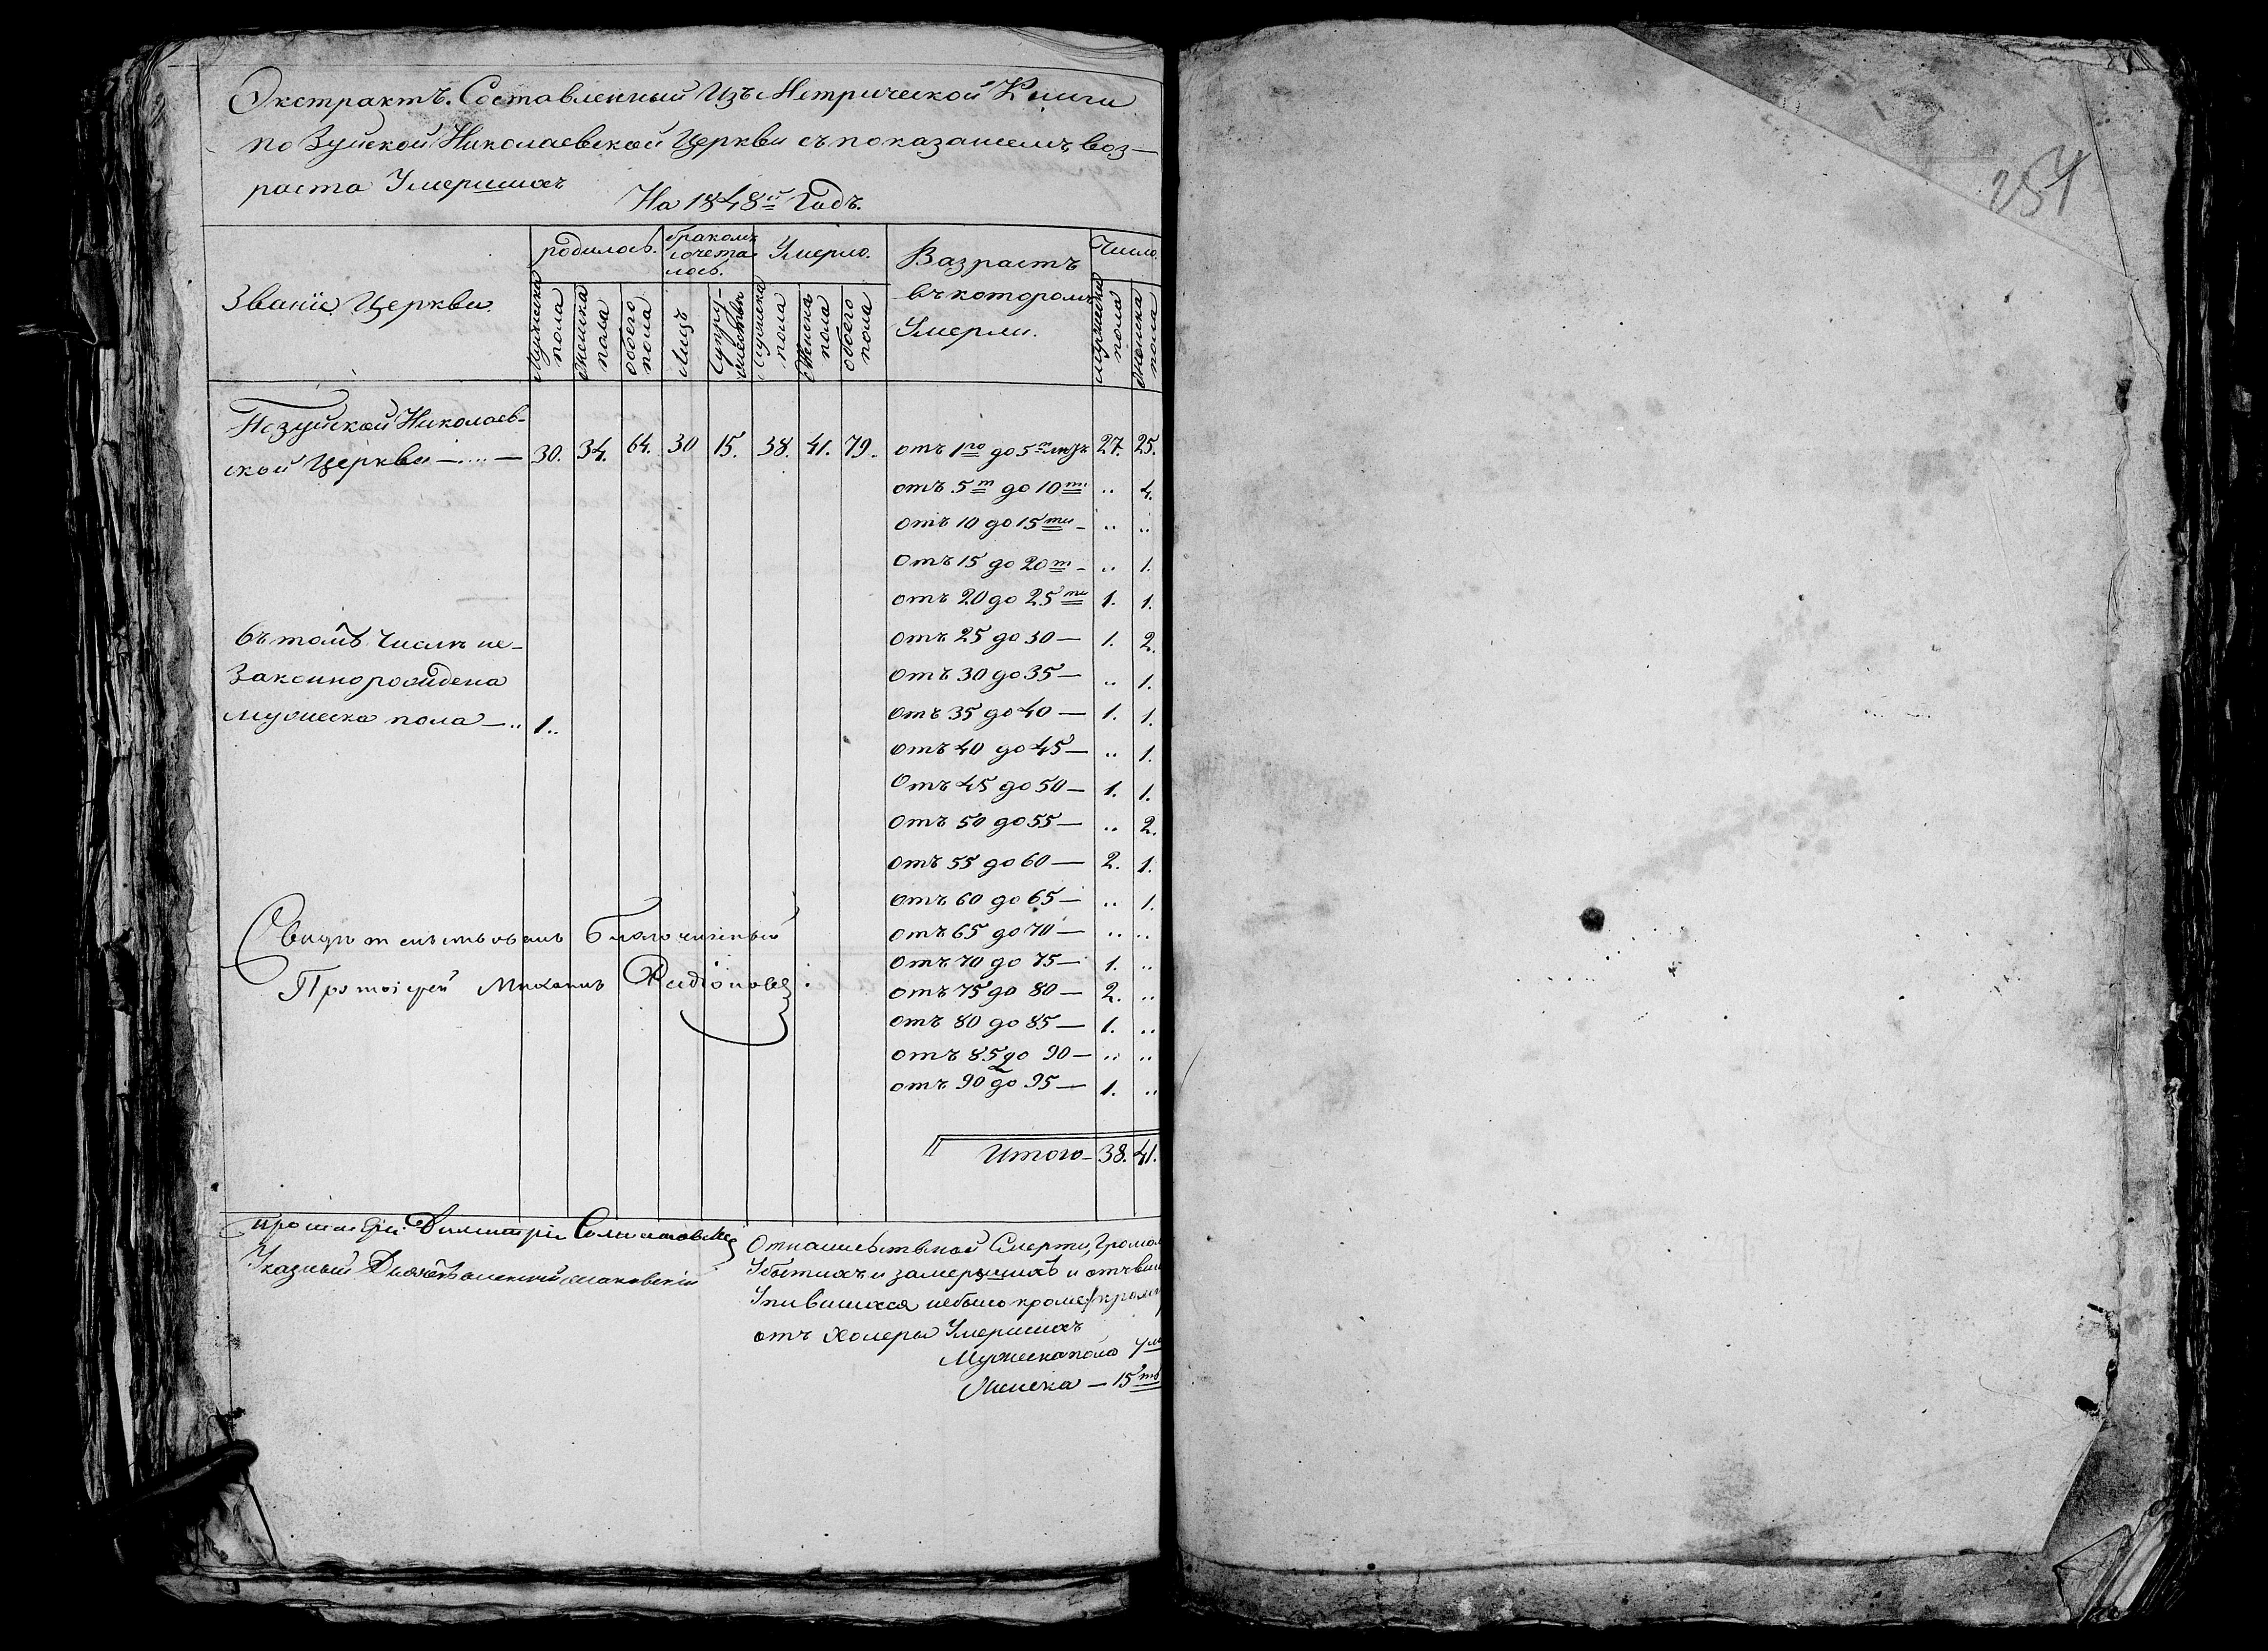 Экстрактъ. Составленный Изъ Метрической Книги
по Зуйской Николаевской Церкви съ показаниемъ воз-
раста Умершихъ
На 1848й Годъ.
Званiе Церкви.
родилось.
бракомъ сочета лось.
Умерло.
Вазрастъ въ которомъ Умерли.
Число.
Мужеска пола
Женска пола
обоего пола
Лицъ
Супружествъ
Мужеска пола
Женска пола
обоего пола
Мужеска пола
Женска пола
По зуйской Николаев-
ской Церкви — 30. 34. 64. 30 15. 38. 41. 79. отъ 1го до 5т летъ 27. 25.
отъ 5т до 10т „ 4.
отъ 10 до 15ти - „ „
отъ 15 до 20т - „ 1.
отъ 20 до 25ти 1. 1.
въ томъ числѣ не-
отъ 25 до 30 — 1. 2.
Законнорожденa
отъ 30 до 35 — „ 1.
мужеска пола — „ 1..
отъ 35 до 40 — 1. 1.
отъ 40 до 45 — „ 1.
отъ 45 до 50 — 1. 1.
отъ 50 до 55 — „ 2.
отъ 55 до 60 — 2. 1.
отъ 60 до 65 — „ 1.
Свидѣтельствовалъ Благочинный
отъ 65 до 70 — „ „
отъ 70 до 75 — 1. „
Протоiерей Михаилъ Родiоновъ
отъ 75 до 80 — 2. „
отъ 80 до 85 — 1. „
отъ 85 до 90 — „ „
отъ 90 до 95 — 1. „
Итого - 38. 41.
Протоiерей Димитрiй
Указный
От насильственной Смерти, Громом
Убитыхъ и замерзшихъ и отъ вина
Упившихся небыло кроме
отъ холеры Умершихъ
Мужеска пола
Женска — 15ть
254